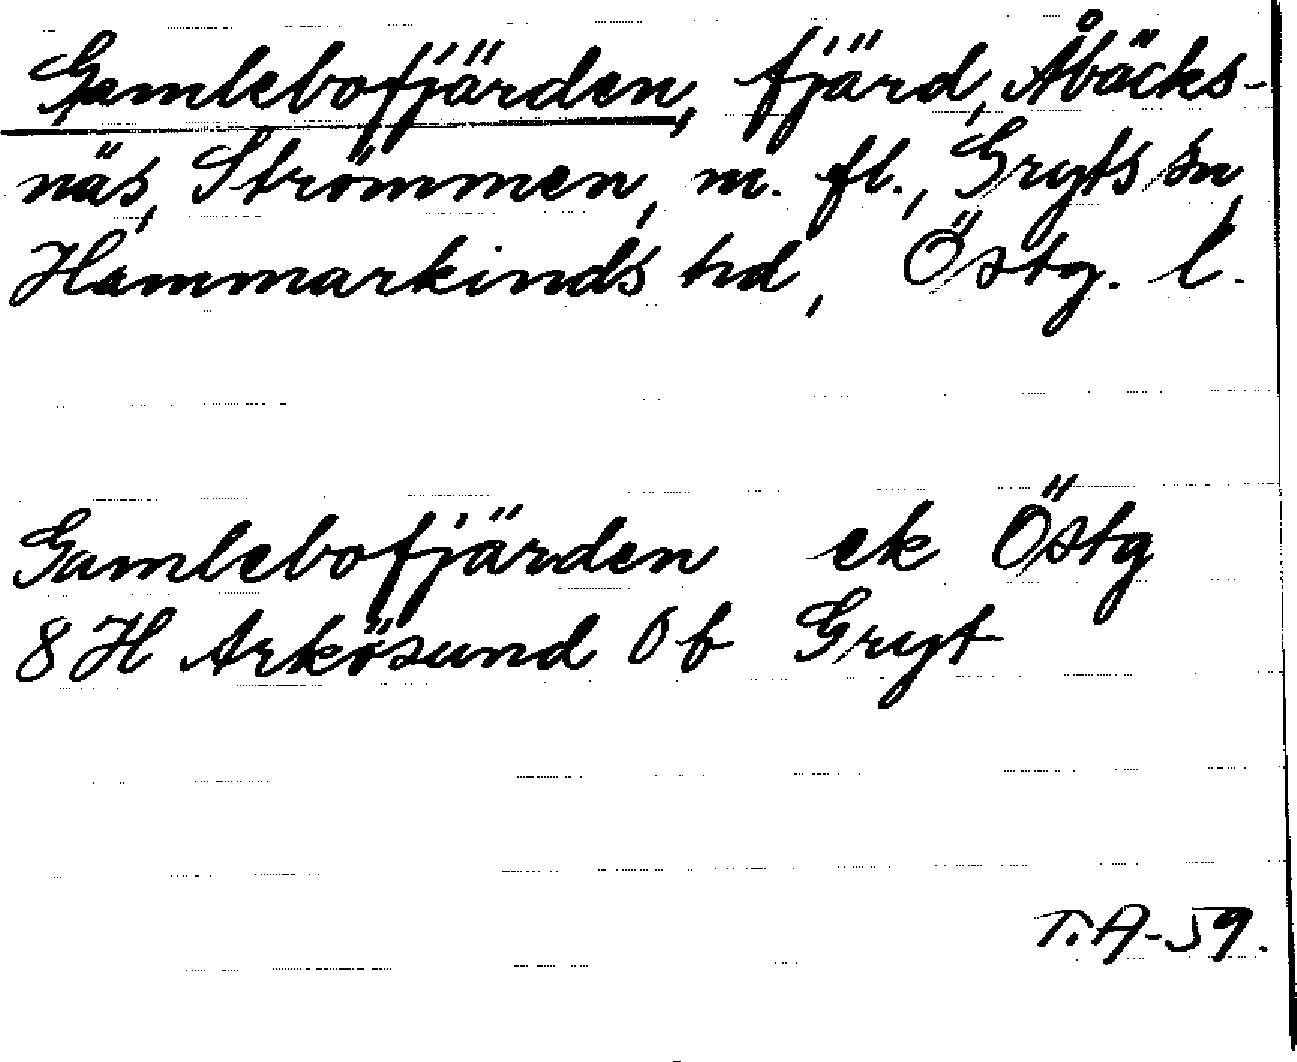 Gamlebofjärden, fjärd, Åbäcks-
näs, Strömmen, m. fl., Gryts sn,
Hammarkinds hd, Östg. l.
Gamlebofjärden ek Östg
8 H Arkösund Öb Gryt
T.A-59.